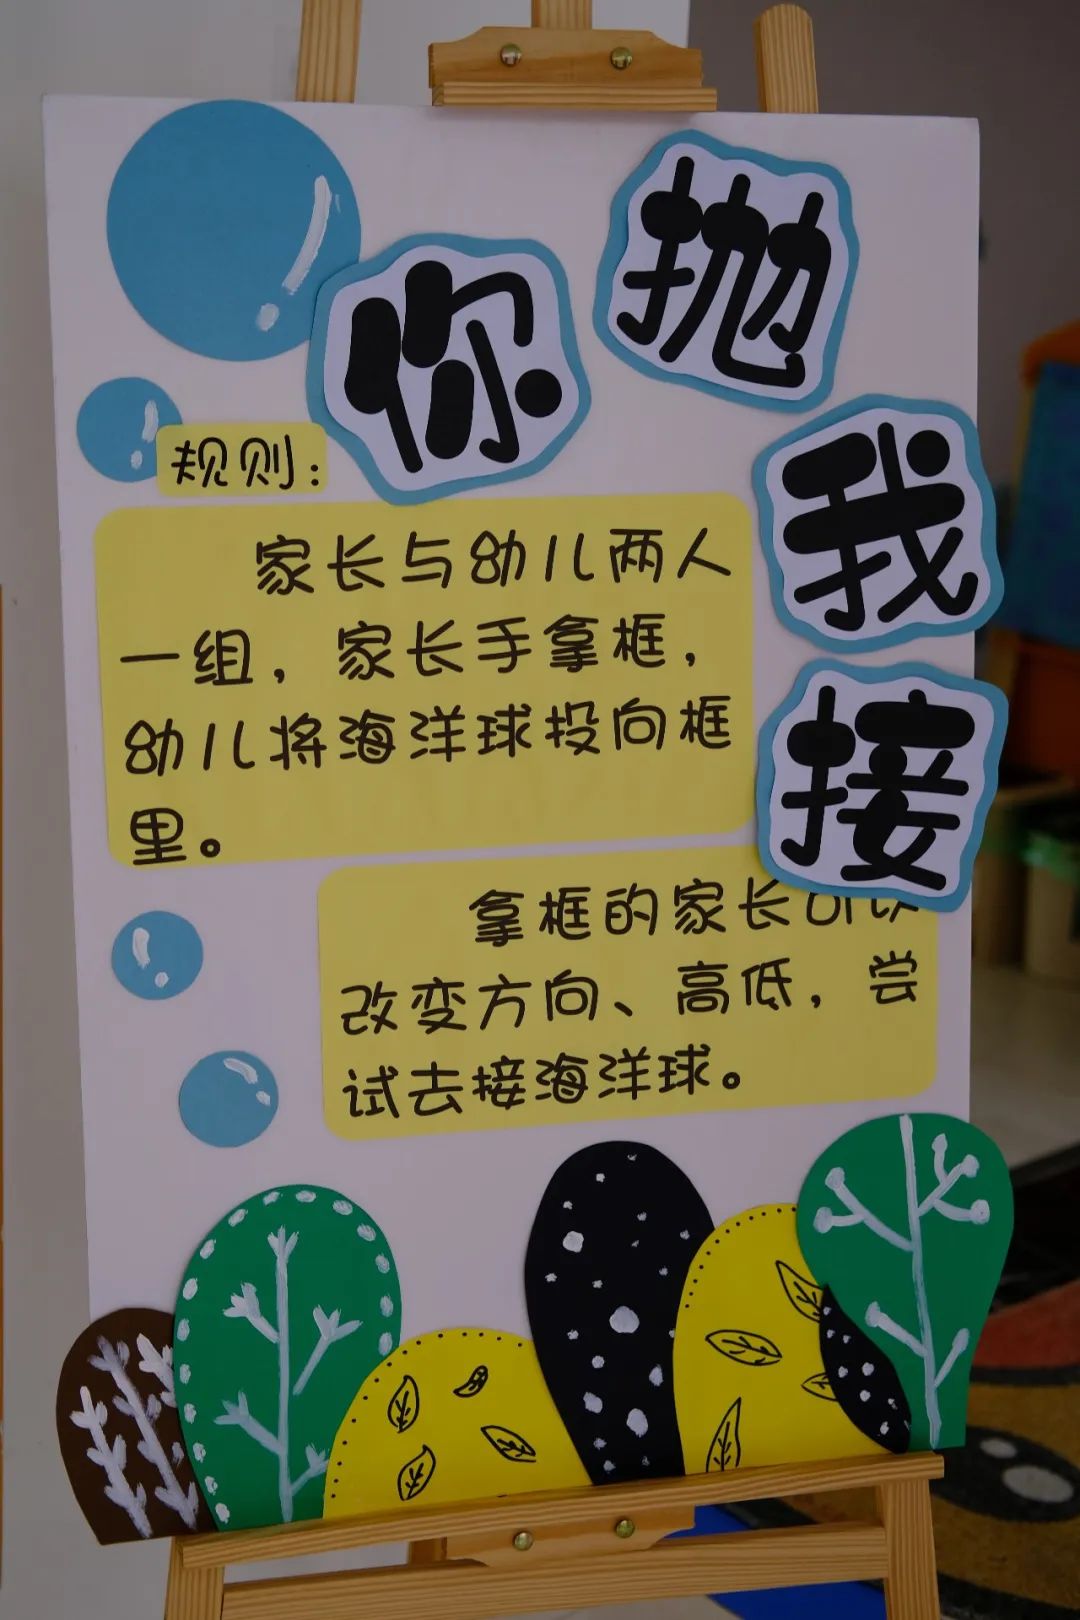 你抛我接
规则：
家长与幼儿两人
一组，家长手拿框，
幼儿将海洋球投向框
里。
拿框的家长可以
改变方向、高低，尝
试去接海洋球。